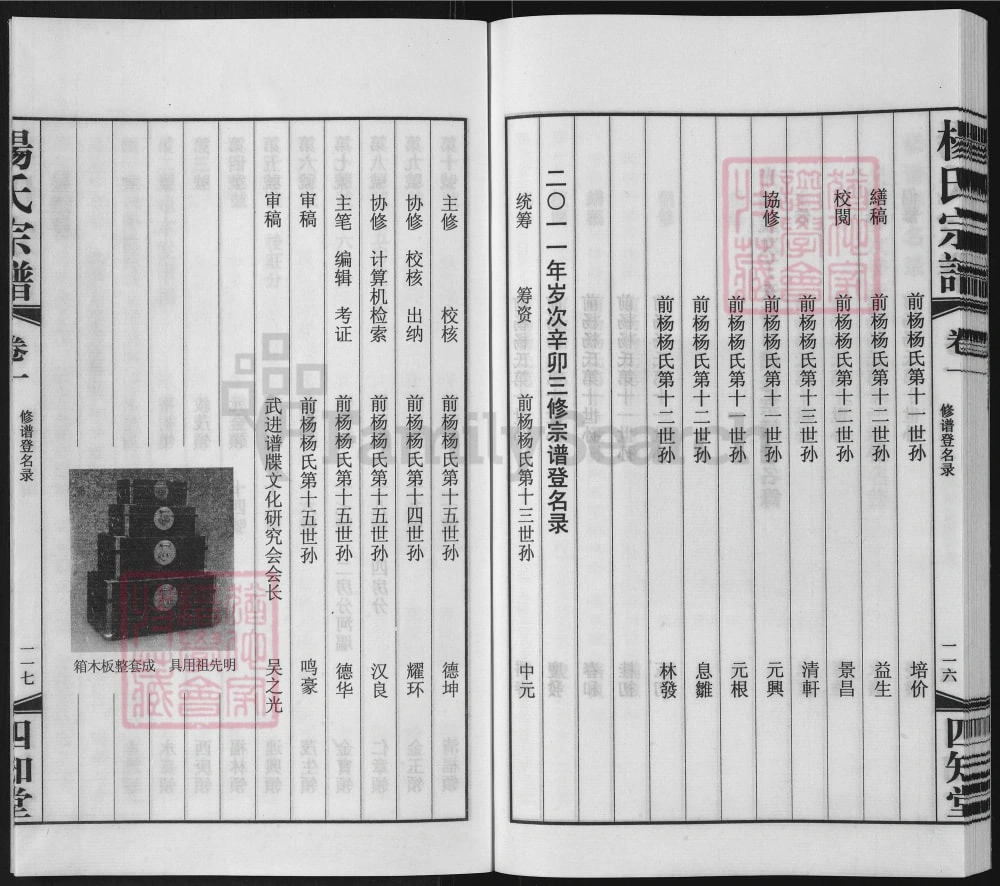 杨氏宗谱
卷一
修谱登名录
一一六
四知堂
前杨杨氏第十一世孙 培价
繕稿 前杨杨氏第十二世孙 益生
校閱 前杨杨氏第十二世孙 景昌
前杨杨氏第十三世孙 清軒
協修 前杨杨氏第十一世孙 元興
前杨杨氏第十一世孙 元根
前杨杨氏第十二世孙 息雛
前杨杨氏第十二世孙 林發
二〇一一年岁次辛卯三修宗谱登名录
统筹 筹资 前杨杨氏第十三世孙 中元
主修 校核 前杨杨氏第十五世孙 德坤
协修 校核 出纳 前杨杨氏第十四世孙 耀环
协修 计算机检索 前杨杨氏第十五世孙 汉良
主笔 编辑 考证 前杨杨氏第十五世孙 德华
审稿 前杨杨氏第十五世孙 鸣豪
审稿 武进谱牒文化研究会会长 吴之光
箱木板整套成 具用祖先明
楊氏宗譜
卷一
修谱登名录
一一七
四知堂
FamilySearch